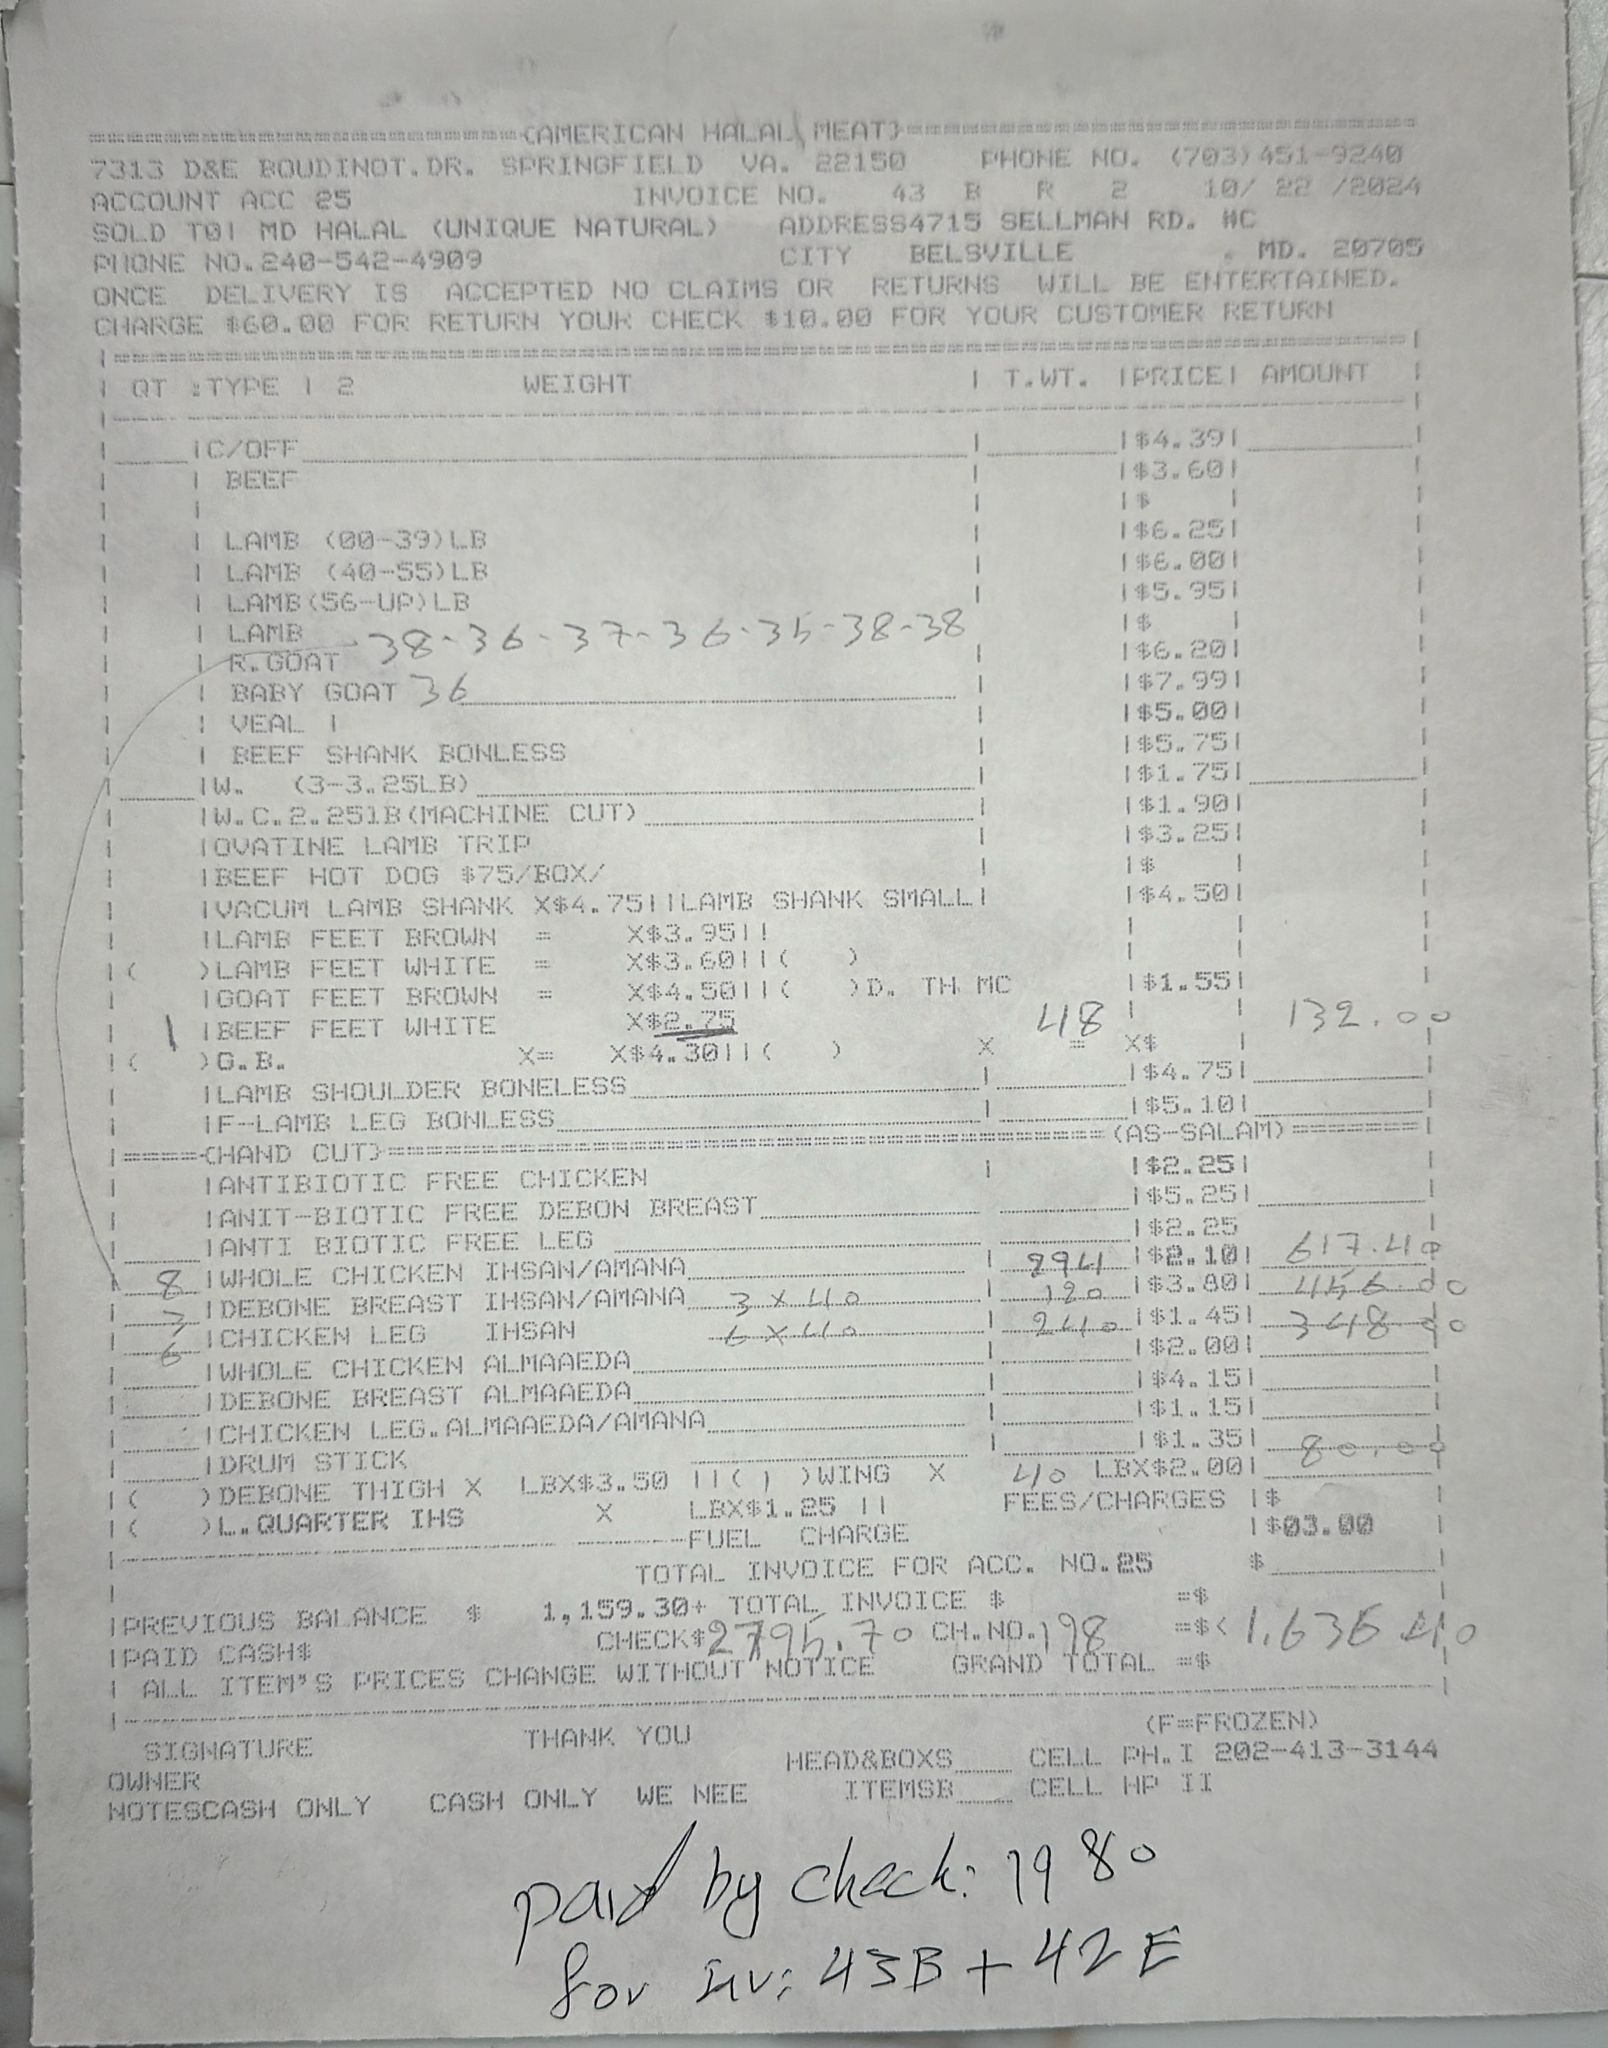 {AMERICAN HALAL MEAT}
7313 D&E BOUDINOT.DR. SPRINGFIELD VA. 22150 PHONE NO. (703)451-9240
ACCOUNT ACC 25 INVOICE NO. 43 B R 2 10/ 22 /2024
SOLD TO| MD HALAL (UNIQUE NATURAL) ADDRESS4715 SELLMAN RD. #C
PHONE NO.240-542-4909 CITY BELSVILLE . MD. 20705
ONCE DELIVERY IS ACCEPTED NO CLAIMS OR RETURNS WILL BE ENTERTAINED.
CHARGE $60.00 FOR RETURN YOUR CHECK $10.00 FOR YOUR CUSTOMER RETURN
| QT :TYPE | 2 WEIGHT | T.WT. |PRICE| AMOUNT |
|C/OFF | |$4.39|
| BEEF |$3.60|
| |$ |
| LAMB (00-39)LB |$6.25|
| LAMB (40-55)LB |$6.00|
| LAMB(56-UP)LB |$5.95|
| LAMB |$ |
| R.GOAT 38-36-37-36-35-38-38 |$6.20|
| BABY GOAT 36 |$7.99|
| VEAL | |$5.00|
| BEEF SHANK BONLESS |$5.75|
|W. (3-3.25LB) |$1.75|
|W.C.2.251B(MACHINE CUT) |$1.90|
|OVATINE LAMB TRIP |$3.25|
|BEEF HOT DOG $75/BOX/ |$ |
|VACUM LAMB SHANK X$4.75||LAMB SHANK SMALL| |$4.50|
|LAMB FEET BROWN = X$3.95|| | |
|( )LAMB FEET WHITE = X$3.60||( ) | |
|GOAT FEET BROWN = X$4.50||( )D. TH MC |$1.55|
1 |BEEF FEET WHITE X$2.75 48 | | 132.00
|( )G.B. X= X$4.30||( ) X = X$ |
|LAMB SHOULDER BONELESS |$4.75|
|F-LAMB LEG BONLESS |$5.10|
|=====(HAND CUT}=====(AS-SALAM)=======|
|ANTIBIOTIC FREE CHICKEN |$2.25|
|ANIT-BIOTIC FREE DEBON BREAST |$5.25|
|ANTI BIOTIC FREE LEG |$2.25
8 |WHOLE CHICKEN IHSAN/AMANA 294 |$2.10| 617.40
3 |DEBONE BREAST IHSAN/AMANA 3 X 40 120 |$3.80| 456.00
6 |CHICKEN LEG IHSAN 6 X 40 240 |$1.45| 348.00
|WHOLE CHICKEN ALMAAEDA |$2.00|
|DEBONE BREAST ALMAAEDA |$4.15|
|CHICKEN LEG.ALMAAEDA/AMANA |$1.15|
|DRUM STICK |$1.35|
|( )DEBONE THIGH X LBX$3.50 ||(1 )WING X 40 LBX$2.00| 80.00
|( )L.QUARTER IHS X LBX$1.25 || FEES/CHARGES |$
FUEL CHARGE |$03.00
TOTAL INVOICE FOR ACC. NO.25 $
|PREVIOUS BALANCE $ 1,159.30+ TOTAL INVOICE $ =$
|PAID CASH$ CHECK$2795.70 CH.NO.198 =$< 1,636.40
| ALL ITEM'S PRICES CHANGE WITHOUT NOTICE GRAND TOTAL =$
THANK YOU (F=FROZEN)
SIGNATURE HEAD&BOXS CELL PH.I 202-413-3144
OWNER ITEMSB CELL HP II
NOTESCASH ONLY CASH ONLY WE NEE
paid by check: 1980
for inv: 43B + 42E